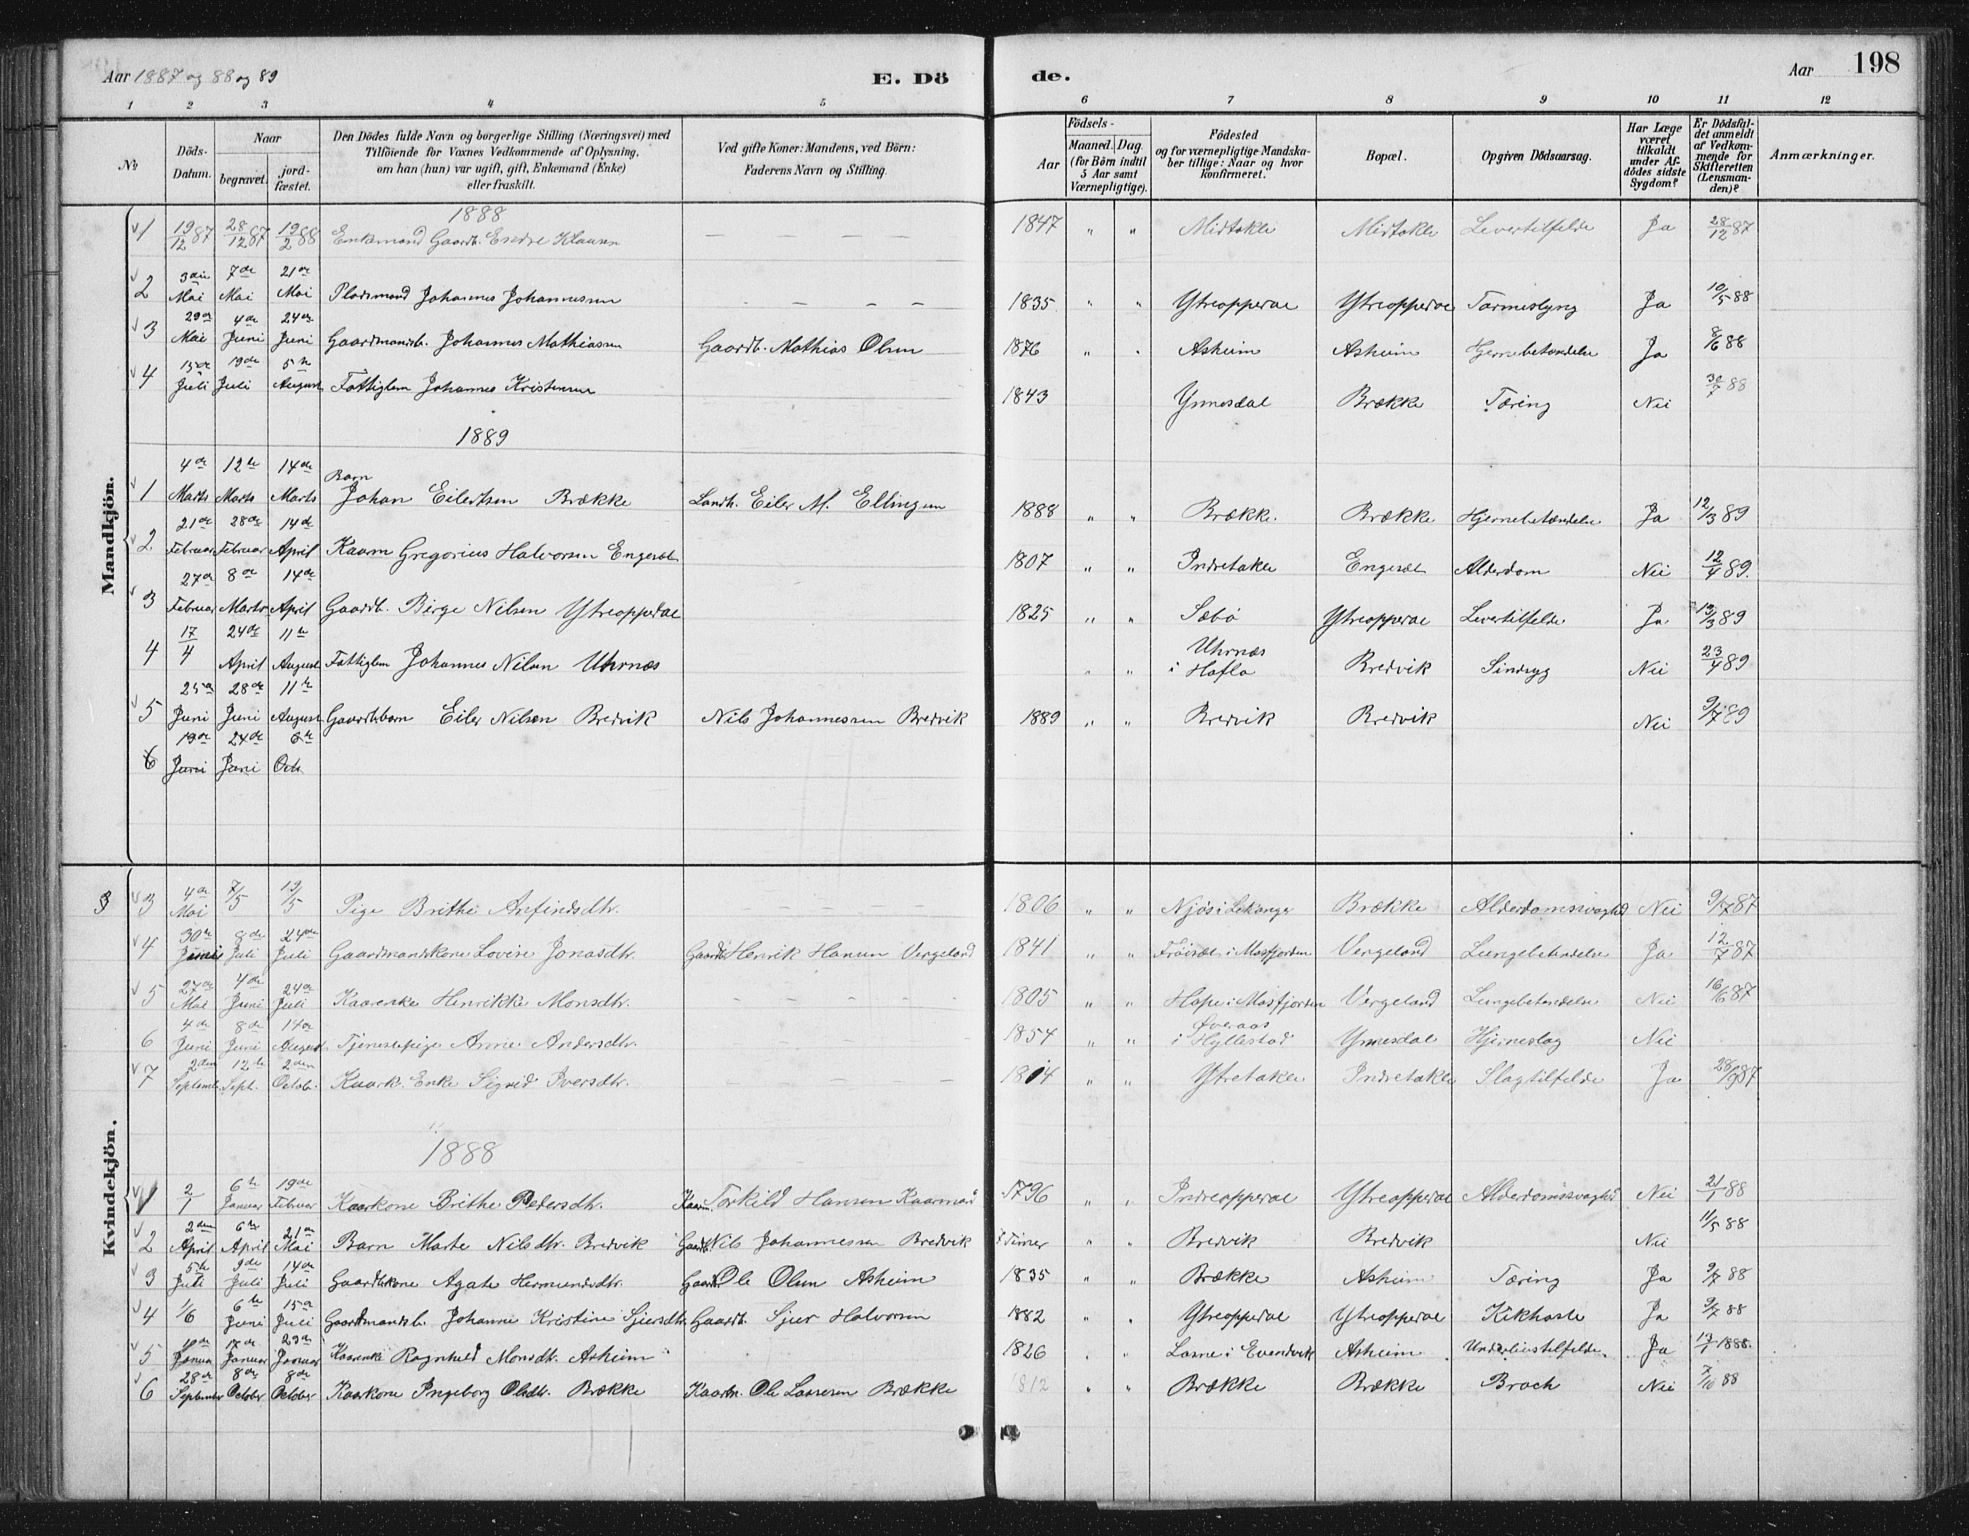 Aar 1887 og 88 og 89
E. Dö
de.
Aar
198
1 2 3 4 5 6 7 8 9 10 11 12
No
Döds-Datum.
Naar
begravet.
jord-fæstet.
Den Dödes fulde Navn og borgerlige Stilling (Næringsvei) med
Tilföiende for Voxnes Vedkommende af Oplysning,
om han (hun) var ugift, gift, Enkemand (Enke)
eller fraskilt.
Ved gifte Koner: Mandens, ved Börn:
Faderens Navn og Stilling.
Födsels-
Aar
Maaned. Dag.
(for Börn indtil
5 Aar samt
Værnepligtige).
Födested
og for værnepligtige Mandska-
ber tillige: Naar og hvor
konfirmeret.
Bopæl.
Opgiven Dödsaarsag.
Har Læge
været
tilkaldt
under Af-
dödes sidste
Sygdom?
Er Dödsfal-
det anmeldt
af Vedkom-
mende for
Skifteretten
(Lensman-
den)?
Anmærkninger.
Mandkjön.
1888
1 19/12 87 28/12 87 19/2 88 Enkemand Gaardb. Endre Klausen — — — — 1847 " " Midtakle Midtakle Levertilfelde Ja 28/12 87
2 3die Mai 7de Mai 21de Mai Pladsmand Johannes Johannessen — — — — 1835 " " Ytreopperdal Ytreopperdal Tarmeslyng Ja 10/5 88
3 29de Mai 4de Juni 24de Juni Gaardmandsb. Johannes Mathiassen Gaardb. Mathias Olsen 1876 " " Asheim Asheim Hjernebetændelse Ja 8/6 88
4 15de Juli 19de Juli 5te August Fattiglem Johannes Kristensen 1843 Ynnesdal Brække Tæring Nei 30/7 88
1889
1 4de Marts 12te Marts 14de Marts Barn Johan Eilertsen Brække Landh. Eiler M. Ellingsen 1888 " " Brække Brække Hjernebetændelse Ja 12/3 89
2 21de Februar 28de Februar 14de April Kaarm Gregorius Halvorsen Engesæt 1807 " " Indretakle Engesæt Alderdom Nei 12/4 89.
3 27de Februar 8de Marts 14de April Gaardb. Børge Nilsen Ytreopperdal 1825 " " Sæbø Ytreopperdal Levertilfelde Ja 13/3 89
4 17/4 24de April 11te August Fattiglem Johannes Nilsen Uhrnæs " " Uhrnæs i Hafslo Bredvik Sindsyg Nei 23/4 89
5 25de Juni 28de Juni 11te August Gaardbbarn Eiler Nilsen Bredvik Nils Johannessen Bredvik 1889 " " Bredvik Bredvik Nei 9/7 89
6 19de Juni 24de Juni 6te Octr.
Kvindekjön.
3 3 4de Mai 7/5 19/5 Pige Brithe Arfindsdtr. — — — — 1806 " " Njøs i Leikanger Brække Alderdomssvaghed Nei 9/7 87
4 30te Juni 8de Juli 24de Juli Gaardmandskone Lovise Jonasdtr. Gaardb. Henrik Hansen Vergeland 1841 " " Frøiset i Masfjorden Vergeland Lungebetændelse Ja 12/7 87
5 27de Mai 4de Juni 24de Juli Kaarenke Henrikke Monsdtr. — — — — 1805 " " Hope i Masfjorden Vergeland Lungebetændelse Nei 16/6 87
6 4de Juni 8de Juni 14de August Tjenestepige Anne Andersdtr. 1854 " " Øveraas i Hyllestad Ynnesdal Hjerneslag Nei
7 2den Septemb. 12te Sept. 2den Octob. Kaark. Enke Sigrid Iversdtr. — — 1814 " " Ytretakle Indretakle Slagtilfelde Ja 28/9 87
1888
1 2/1 6te Januar 19de Februar Kaarkone Brithe Pedersdtr. Kaarm. Torkild Hansen Kaarmand 1796 " " Indreopperdal Ytreopperdal Alderdomssvaghed Nei 21/1 88
2 2den April 6te April 21de Mai Barn Marte Nilsdtr. Bredvik Gaardb. Nils Johannessen Bredvik Timer " " Bredvik Bredvik Nei 11/5 88
3 5te Juli 9de Juli 14de Juli Gaardbkone Agate Hermundsdtr. Gaardb. Ole Olsen Asheim 1835 " " Brække Asheim Tæring Ja 9/7 88
4 1/6 6te Juni 15de Juli Gaardmandsb. Johanne Kristine Sjursdtr. Gaardb. Sjur Halvorsen 1882 " " Ytreopperdal Ytreopperdal Kikhoste Ja 9/7 88
5 10de Januar 17de Januar 29de Januar Kaarenke Ragnhild Monsdtr. Asheim 1826 " " Lasne i Evendvik Asheim Underlivstilfelde. Ja 19/1 1888.
6 28de September 8de October 8de October Kaarkone Ingeborg Olsdtr. Brække Kaarm. Ole Lassesen Brække 1812 " " Brække Brække Broch Nei 7/10 88